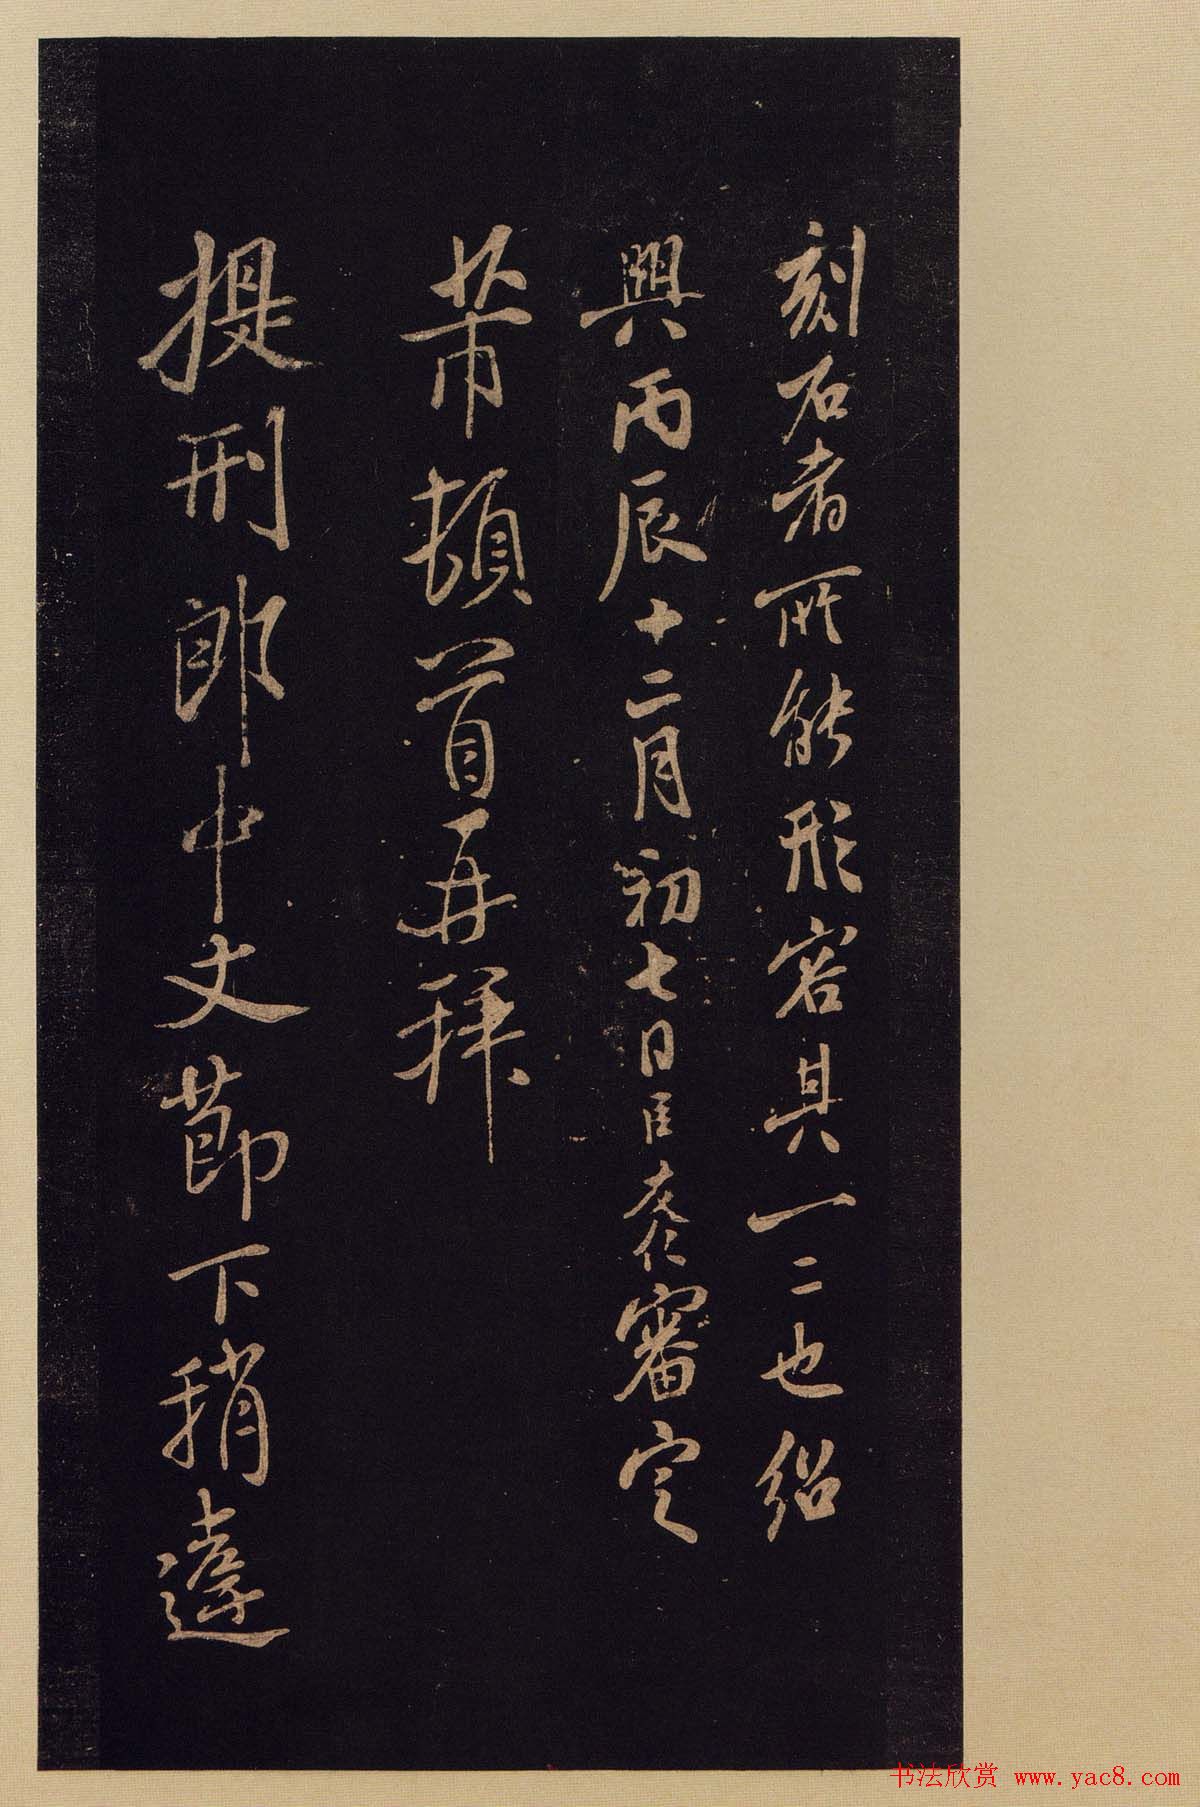 刻石者所能形容其一二也绍
興丙辰十二月初七日臣友仁審定
芾頓首再拜
提刑郎中丈節下稍違
书法欣赏 www.yac8.com